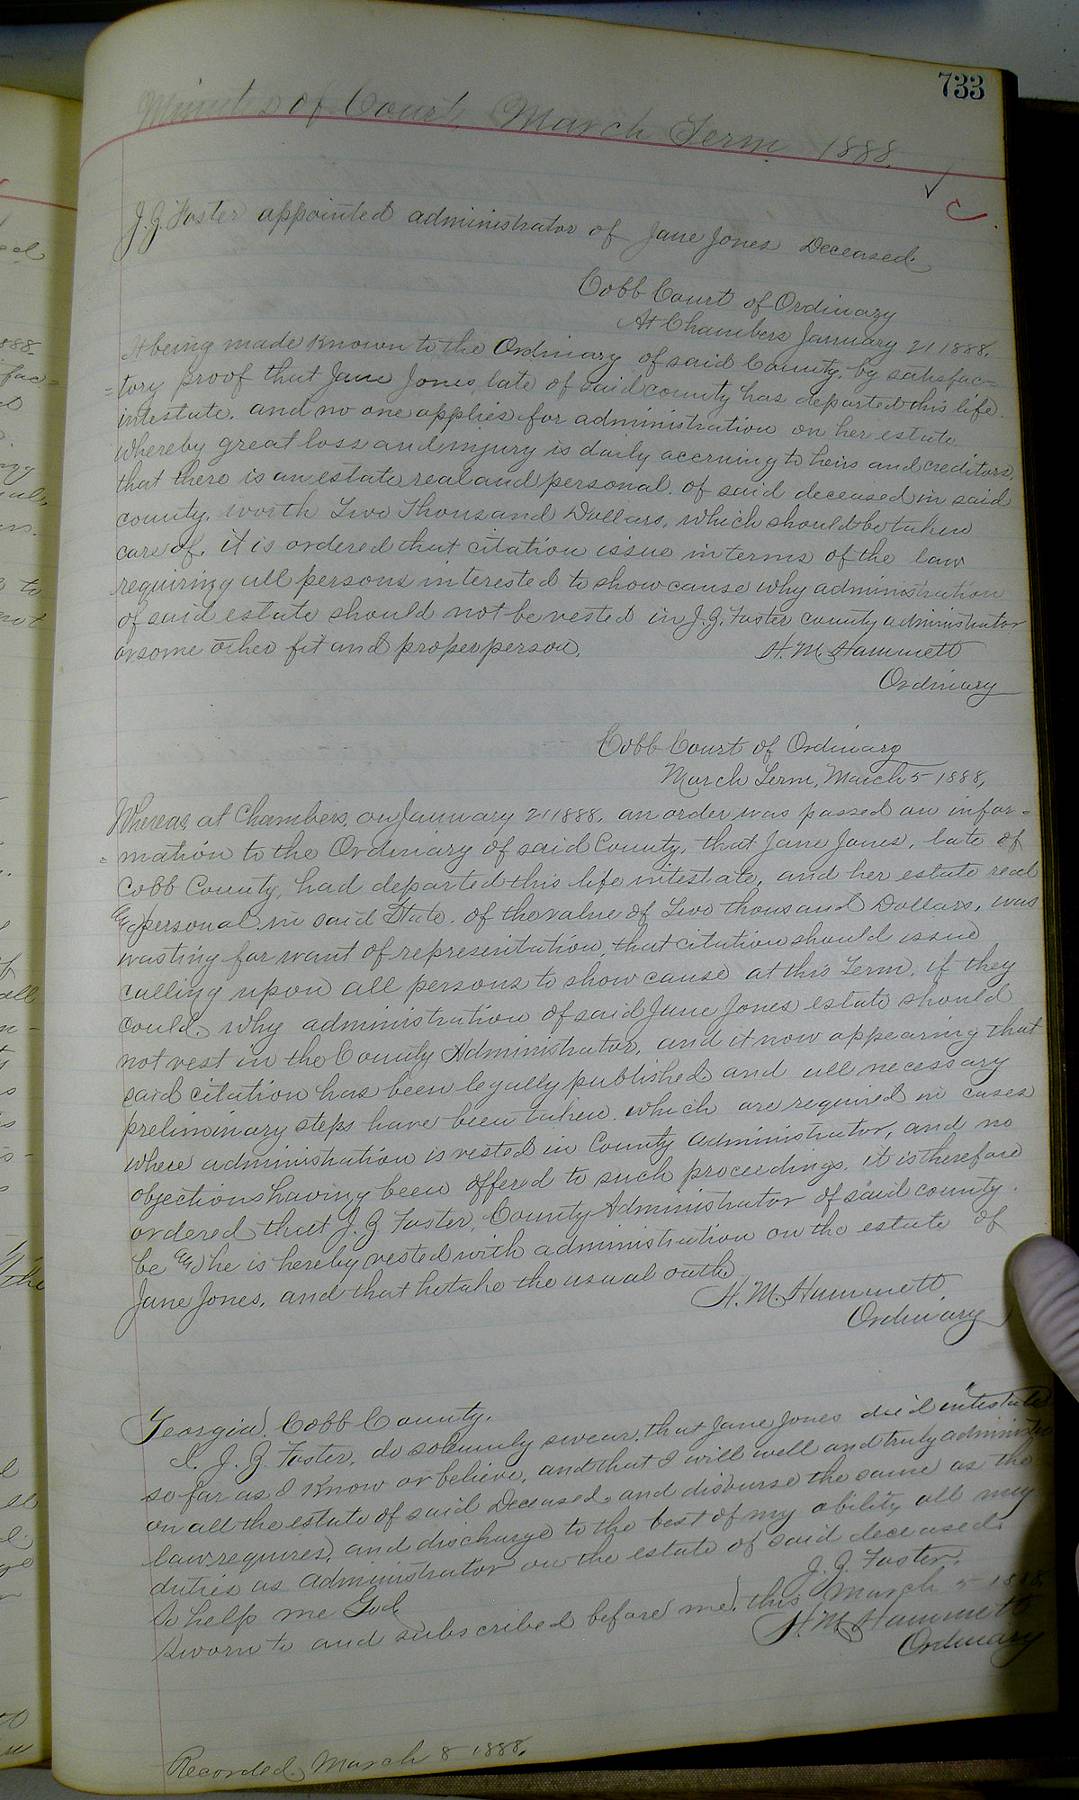 733
Minutes of Court, March Term 1888.
J. G. Foster appointed administrator of Jane Jones Deceased.
Cobb Court of Ordinary
At Chambers January 21 1888.
It being made known to the Ordinary of said County, by satisfac-
=tory proof that Jane Jones, late of said county has departed this life
intestate, and no one applies for administration on her estate
whereby great loss and injury is daily accruing to heirs and creditors,
that there is an estate real and personal of said deceased in said
county, worth Two Thousand Dollars, which should be taken
care of, it is ordered that citation issue in terms of the law
requiring all persons interested to show cause why administration
of said estate should not be vested in J. G. Foster county administrator
or some other fit and proper person.
H. M. Hammett
Ordinary
Cobb Court of Ordinary
March Term, March 5 1888,
Whereas at Chambers, on January 21 1888, an order was passed on infor-
=mation to the Ordinary of said County, that Jane Jones, late of
Cobb County, had departed this life intestate, and her estate real
and personal in said State, of the value of Two thousand Dollars, was
wasting for want of representation, that citation should issue
calling upon all persons to show cause at this Term, if they
could, why administration of said Jane Jones estate should
not vest in the County Administrator, and it now appearing that
said citation has been legally published and all necessary
preliminary steps have been taken which are required in cases
where administration is vested in County administrator, and no
objections having been offered to such proceedings, it is therefore
ordered that J. G. Foster, County Administrator of said county
be and he is hereby vested with administration on the estate of
Jane Jones, and that he take the usual oath
H. M. Hammett,
Ordinary
Georgia, Cobb County.
I, J. G. Foster, do solemnly swear, that Jane Jones died intestate
so far as I know or believe, and that I will well and truly administer
on all the estate of said Deceased, and disburse the same as the
law requires, and discharge to the best of my ability all my
duties as administrator on the estate of said deceased.
So help me God.
J. G. Foster.
Sworn to and subscribed before me, this March 5 1888.
H. M. Hammett
Ordinary
Recorded March 8 1888.